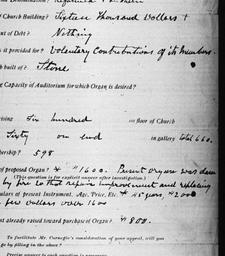 of Church Building? Sixteen Thousand Dollars
nt of Debt? Nothing
is it provided for? Voluntary Contributions of its Members.
h built of? Stone
g Capacity of Auditorium for which Organ is desired?
Six hundred on floor of Church
Sixty on end in gallery total 660.
bership? 598
of proposed Organ? $1600. Present organ was
(This question is for explicit answer after investigation.)
by fire so that repair improvement and replacing
ulars of present Instrument, Age, Price, Etc. 25 years, $2000
few dollars over 1600
nt already raised toward purchase of Organ? $800.
To facilitate Mr. Carnegie's consideration of your appeal, will you
ge by filling in the above?
Precise answer to each question is necessary.